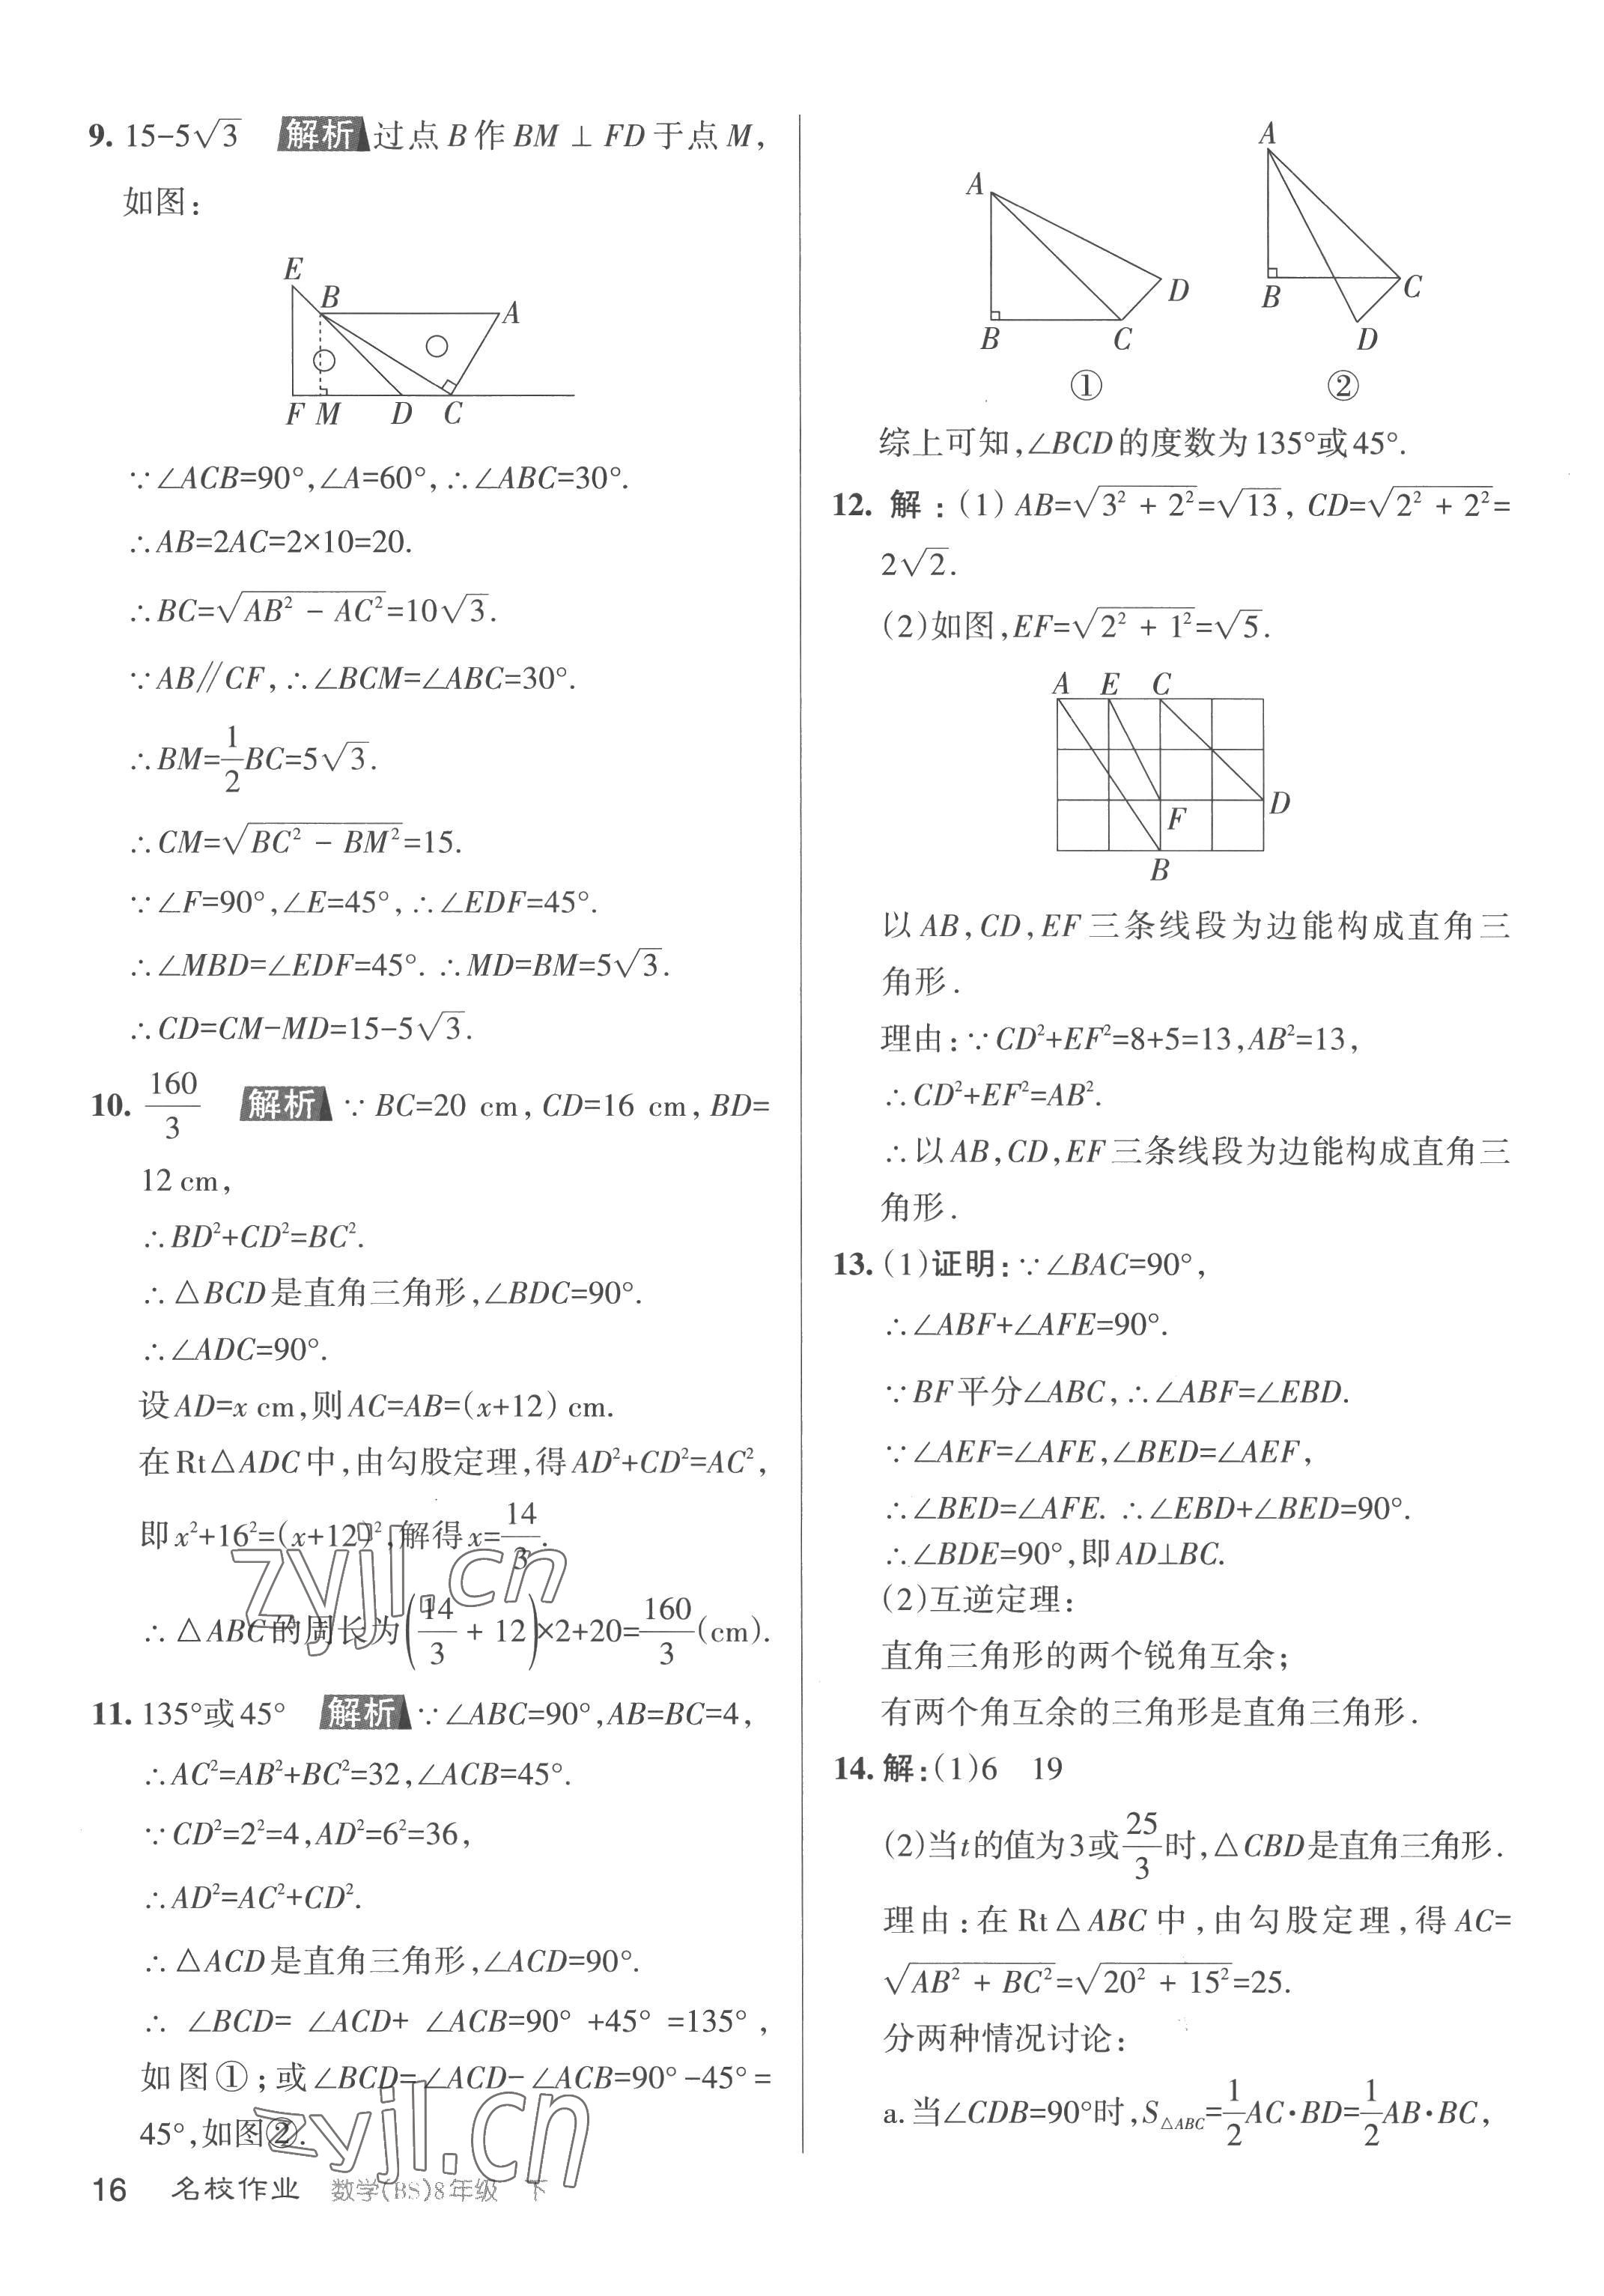 9. 15-5√3 解析 过点B作BM⊥FD于点M,
如图:
E
B
A
F M D C
∵∠ACB=90°,∠A=60°,∴∠ABC=30°.
∴AB=2AC=2×10=20.
∴BC=√(AB²-AC²)=10√3.
∵AB∥CF,∴∠BCM=∠ABC=30°.
∴BM=1/2BC=5√3.
∴CM=√(BC²-BM²)=15.
∵∠F=90°,∠E=45°,∴∠EDF=45°.
∴∠MBD=∠EDF=45°.∴MD=BM=5√3.
∴CD=CM-MD=15-5√3.
10. 160/3 解析 ∵BC=20 cm,CD=16 cm,BD=
12 cm,
∴BD²+CD²=BC².
∴△BCD是直角三角形,∠BDC=90°.
∴∠ADC=90°.
设AD=x cm,则AC=AB=(x+12) cm.
在Rt△ADC中,由勾股定理,得AD²+CD²=AC²,
即x²+16²=(x+12)²,解得x=14/3.
∴△ABC的周长为(14/3+12)×2+20=160/3(cm).
11. 135°或45° 解析 ∵∠ABC=90°,AB=BC=4,
∴AC²=AB²+BC²=32,∠ACB=45°.
∵CD²=2²=4,AD²=6²=36,
∴AD²=AC²+CD².
∴△ACD是直角三角形,∠ACD=90°.
∴∠BCD=∠ACD+∠ACB=90°+45°=135°,
如图①;或∠BCD=∠ACD-∠ACB=90°-45°=
45°,如图②.
A
B
C
D
①
A
B
C
D
②
综上可知,∠BCD的度数为135°或45°.
12. 解:(1)AB=√(3²+2²)=√13,CD=√(2²+2²)=
2√2.
(2)如图,EF=√(2²+1²)=√5.
A E C
D
F
B
以AB,CD,EF三条线段为边能构成直角三
角形.
理由:∵CD²+EF²=8+5=13,AB²=13,
∴CD²+EF²=AB².
∴以AB,CD,EF三条线段为边能构成直角三
角形.
13. (1)证明:∵∠BAC=90°,
∴∠ABF+∠AFE=90°.
∵BF平分∠ABC,∴∠ABF=∠EBD.
∵∠AEF=∠AFE,∠BED=∠AEF,
∴∠BED=∠AFE.∴∠EBD+∠BED=90°.
∴∠BDE=90°,即AD⊥BC.
(2)互逆定理:
直角三角形的两个锐角互余;
有两个角互余的三角形是直角三角形.
14. 解:(1)6 19
(2)当t的值为3或25/3时,△CBD是直角三角形.
理由:在Rt△ABC中,由勾股定理,得AC=
√(AB²+BC²)=√(20²+15²)=25.
分两种情况讨论:
a.当∠CDB=90°时,S△ABC=1/2AC·BD=1/2AB·BC,
zyjl.cn
zyjl.cn
16 名校作业 数学(BS)8年级 下